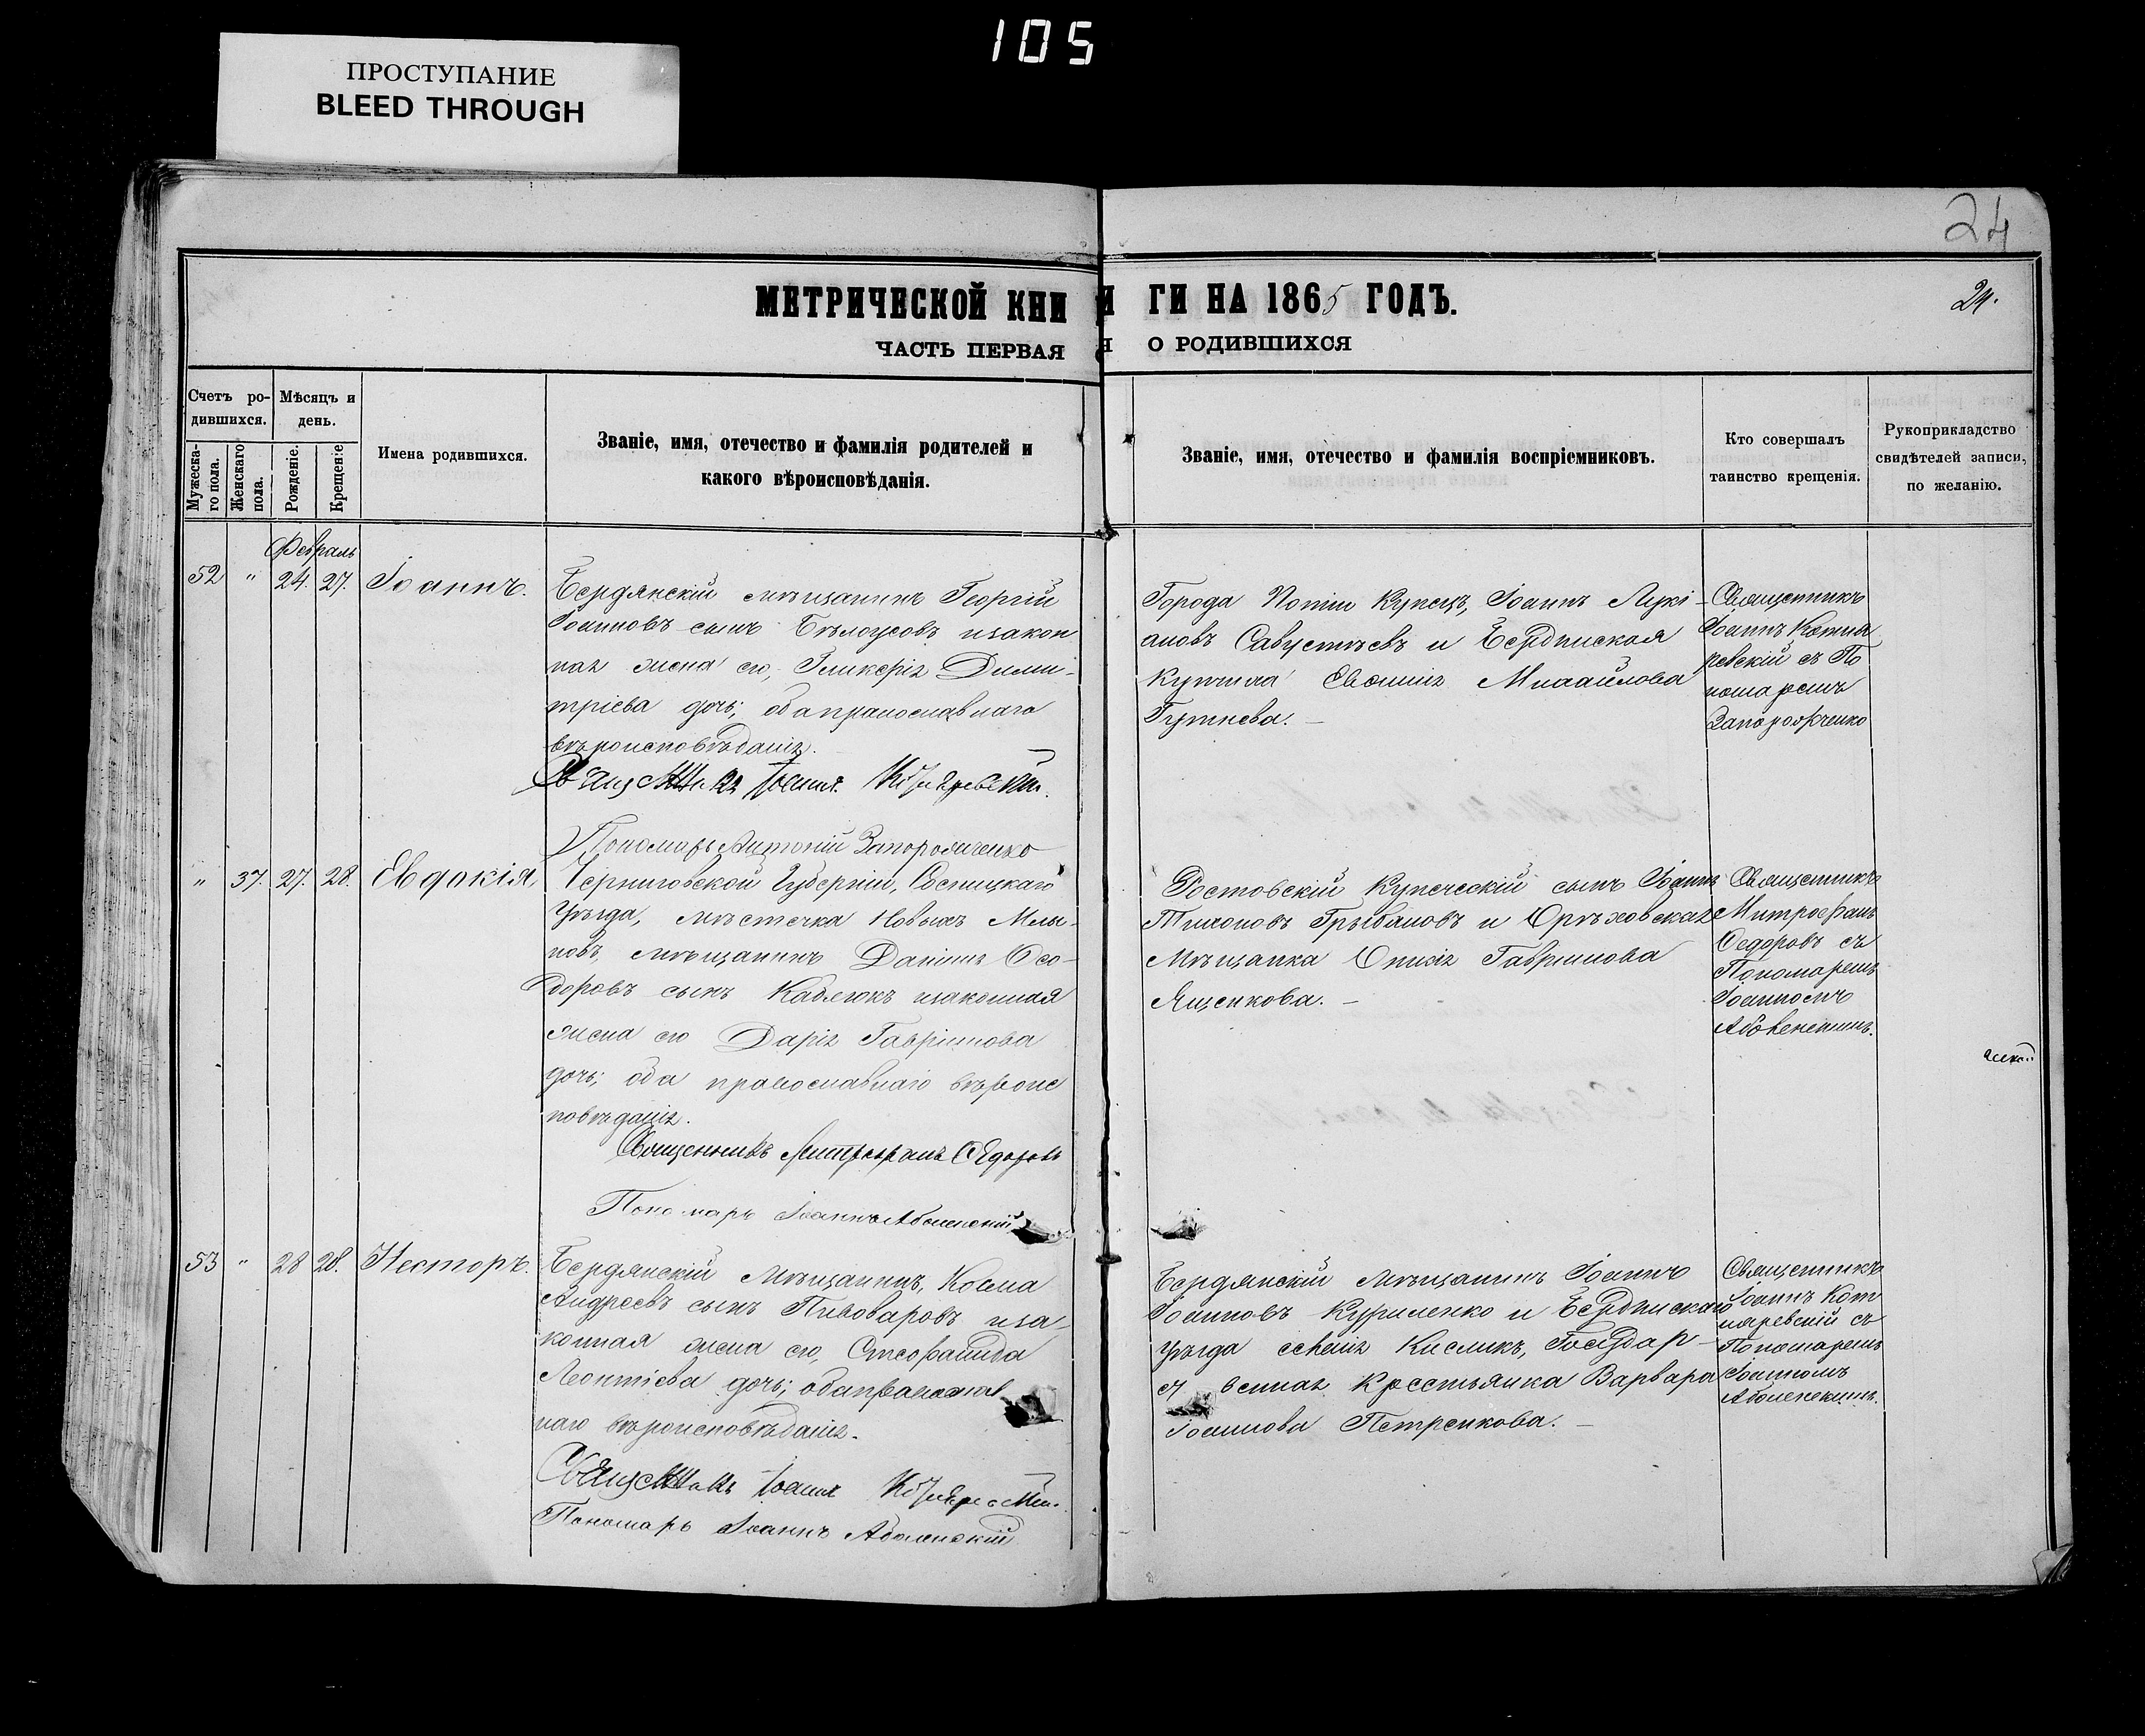 105
ПРОСТУПАНИЕ
BLEED THROUGH
24
МЕТРИЧЕСКОЙ КНИ ГИ НА 1865 ГОДЪ.
24.
ЧАСТЬ ПЕРВАЯ О РОДИВШИХСЯ
Счетъ ро-
дившихся.
Мѣсяцъ и
день.
Мужеска-
го пола.
Женскаго
пола.
Рожденіе.
Крещеніе
Имена родившихся.
Званіе, имя, отечество и фамилія родителей и
какого вѣроисповѣданія.
Званіе, имя, отечество и фамилія воспріемниковъ.
Кто совершалъ
таинство крещенія.
Рукоприкладство
свидѣтелей записи,
по желанію.
Февраль
52 " 24. 27. Іоаннъ.
Бердянскій мѣщанинъ Георгій
Іоанновъ сынъ Бѣлоусовъ изакон
ная жена его, Гликерія Дими-
тріева дочь; оба православнаго
вѣроисповѣданія.
Священникъ Іоаннъ Котляревскій.
Пономарь Антоній Запорожченко
Города Купецъ, Іоаннъ Лукі-
ановъ и Бердянская
Купчиха Михайлова
Священникъ
Іоаннъ Котля
ревскій съ По
номаремъ
Запорожченко
" 37. 27. 28. Евдокія,
Черниговской Губерніи, Сосницкаго
Уѣзда, мѣстечка Новыхъ Млы-
новъ, мѣщанинъ Даніилъ Ѳео-
доровъ сынъ Каблюкъ изаконная
жена его Дарія Гавріилова
дочь; оба православнаго вѣроис
повѣданія.
Священникъ Митрофанъ Ѳедоровъ
Пономарь Іоаннъ Аболенскій
Ростовскій Купеческій сынъ Іоаннъ
Тихоновъ Грибановъ и Орѣховская
Мѣщанка Гавриилова
Ященкова. -
Священникъ
Митрофанъ
Ѳедоровъ съ
Пономаремъ
Іоанномъ
Аболенскимъ.
53 " 28 28. Несторъ.
Бердянскій Мѣщанинъ, Косма
Андреевъ сынъ Пивоваровъ иза-
конная жена его,
Леонтіева дочь; оба православ
наго вѣроисповѣданія.
Священникъ Іоаннъ Котляревскій.
Пономарь Іоаннъ Аболенскій
Бердянскій мѣщанинъ Іоаннъ
Іоанновъ Куриленко и Бердянскаго
уѣзда Государ-
ст венная Крестьянка Варвара
Іоаннова Петренкова. -
Священникъ
Іоаннъ Кот
ляревскій съ
Пономаремъ
Іоанномъ
Аболенскимъ.